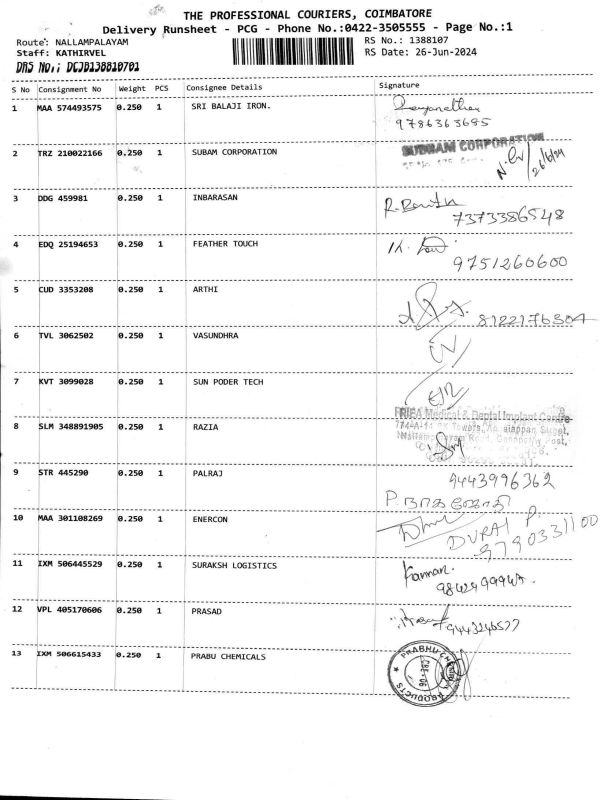 THE PROFESSIONAL COURIERS, COIMBATORE
Delivery Runsheet - PCG - Phone No.:0422-3505555 - Page No.:1
Route: NALLAMPALAYAM
RS No.: 1388107
Staff: KATHIRVEL
RS Date: 26-Jun-2024
DRS No.: DCJB138810701
S No Consignment No Weight PCS Consignee Details Signature
1 MAA 574493575 0.250 1 SRI BALAJI IRON.
9786363695
2 TRZ 210022166 0.250 1 SUBAM CORPORATION SUBBAM CORPORATION
26/6/24
3 DDG 459981 0.250 1 INBARASAN
7373386548
4 EDQ 25194653 0.250 1 FEATHER TOUCH
9751260600
5 CUD 3353208 0.250 1 ARTHI
8122176304
6 TVL 3062502 0.250 1 VASUNDHRA
7 KVT 3099028 0.250 1 SUN PODER TECH
Medical & Dental Implant Centre
8 SLM 348891905 0.250 1 RAZIA
9 STR 445290 0.250 1 PALRAJ
9443996362
10 MAA 301108269 0.250 1 ENERCON
DURAI P.
9790331100
11 IXM 506445529 0.250 1 SURAKSH LOGISTICS
Kannan.
12 VPL 405170606 0.250 1 PRASAD
9443246577
13 IXM 506615433 0.250 1 PRABU CHEMICALS
PRABHU CHEMICAL PRODUCTS
CBE-06